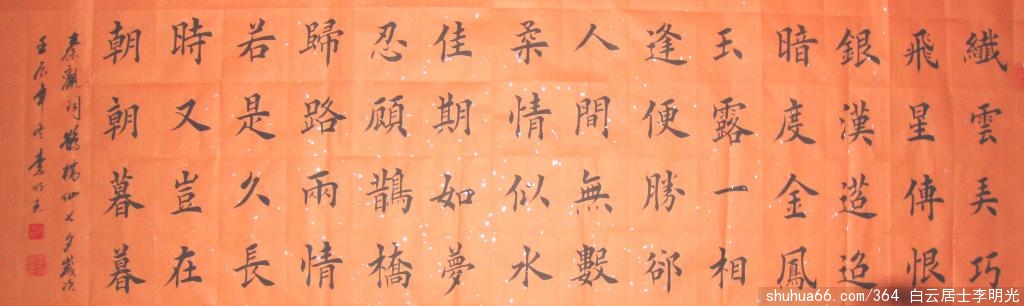 纖雲弄巧
飛星傳恨
銀漢迢迢
暗度金鳳
玉露一相
逢便勝郤
人間無數
柔情似水
佳期如夢
忍顧鵲橋
歸路兩情
若是久長
時又豈在
朝朝暮暮
秦觀詞鵲橋仙七夕歲次
壬辰年冬李明光
shuhua66.com/364 白云居士李明光